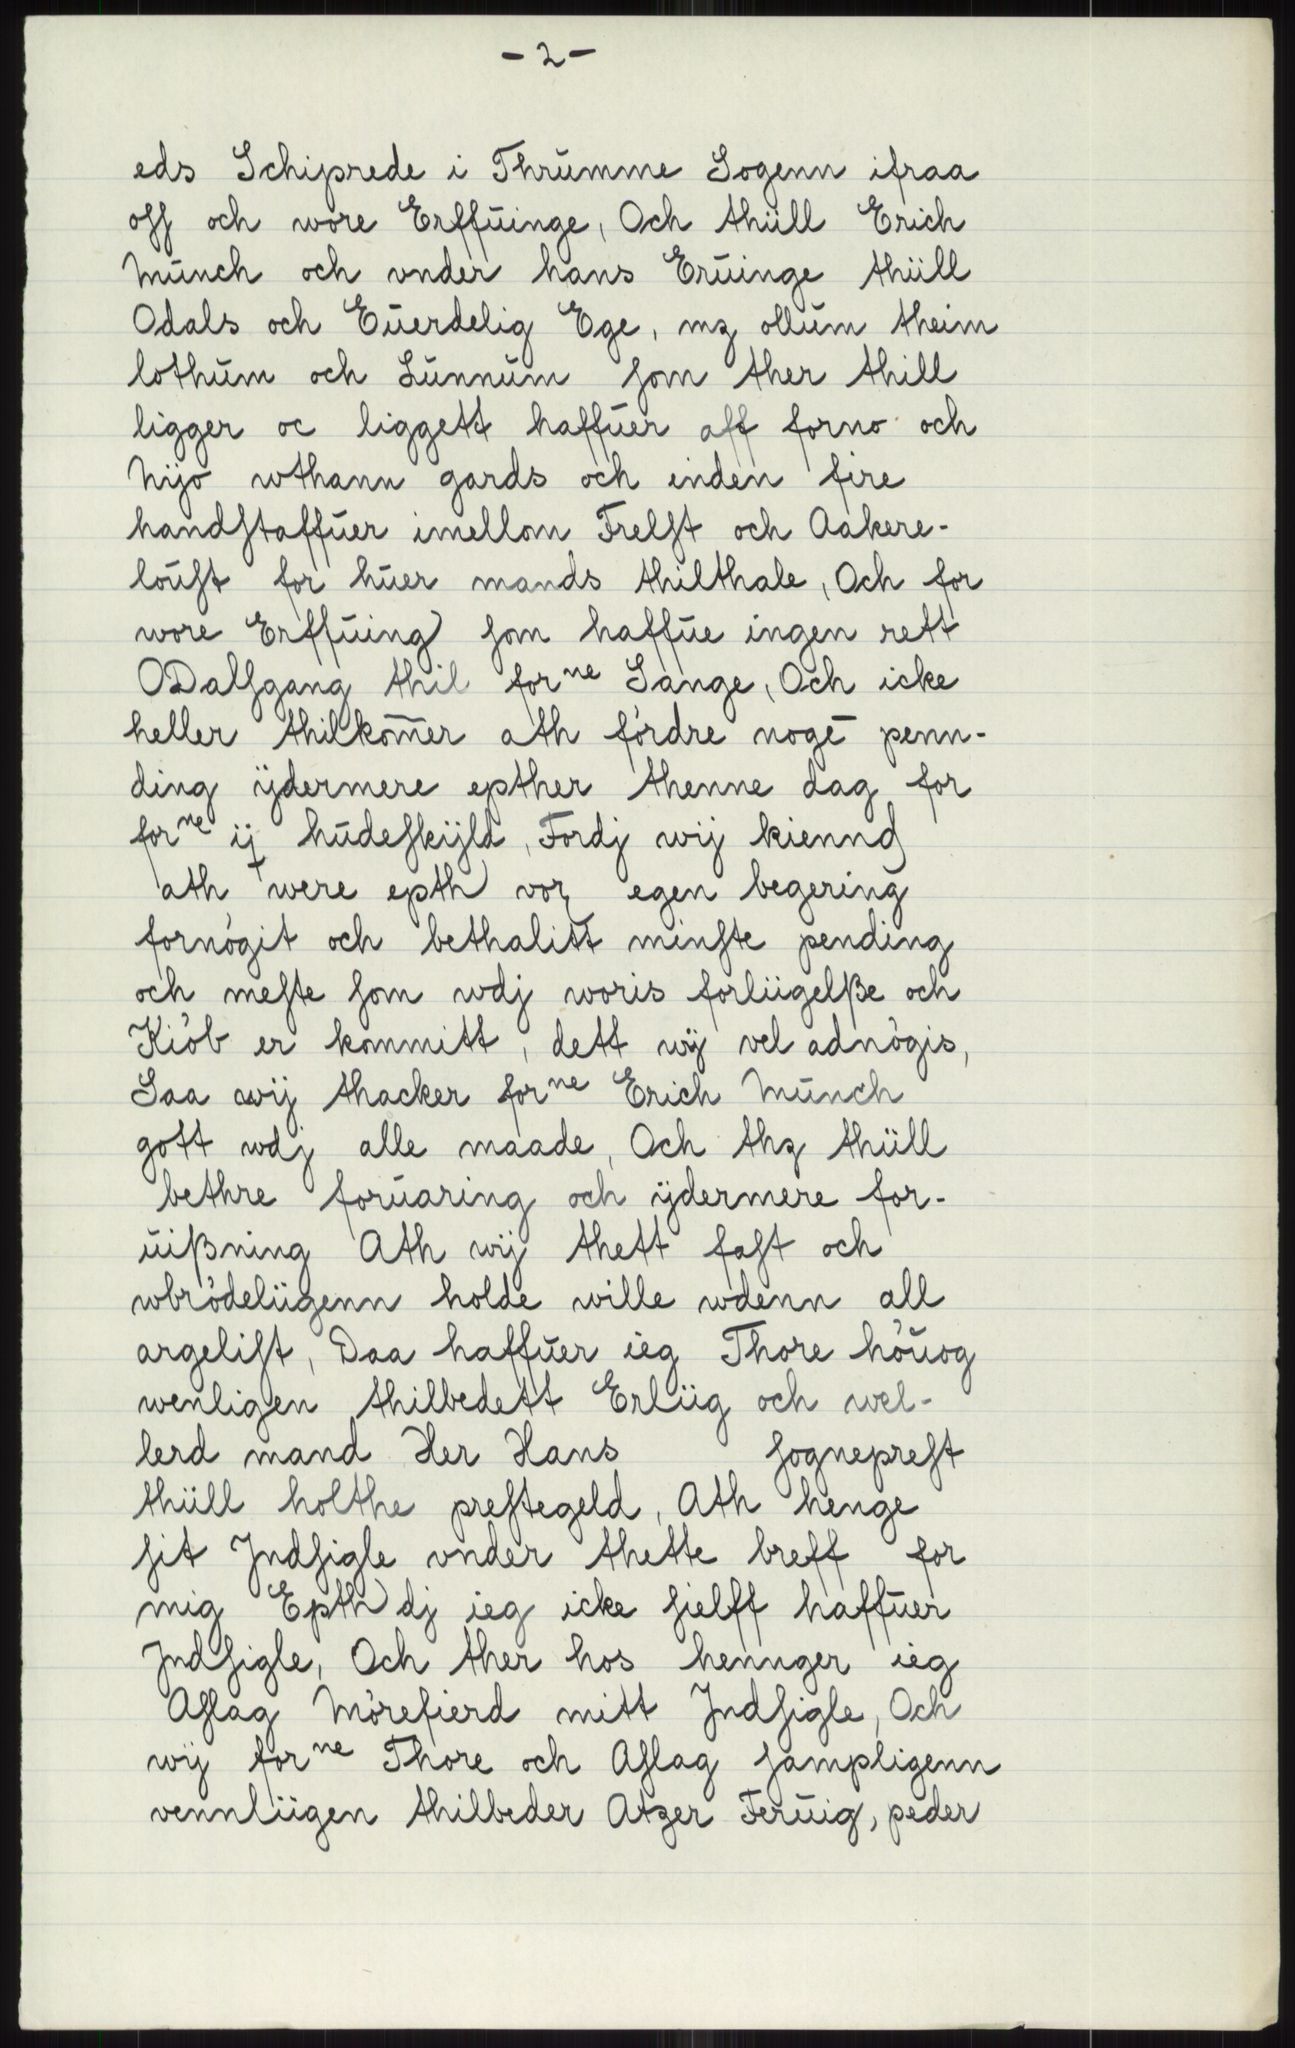 - 2 -
eds Schiprede i Thrŭmme Sogenn ifraa
oſſ och wore Erffŭinge, Och thüll Erich
Mŭnch och vnder hans Erŭinge thüll
Odals och Eŭerdelig Ege, mz ollŭm theim
lothŭm och Lŭnnŭm ſom ther thill
ligger oc liggett haffŭer aff forno och
Nijo wthann gards och inden fire
handſtaffŭer imellom Frelſt och Aakere-
loŭſt for hŭer mands thilthale, Och for
wore Erffŭing ſom haffŭe ingen rett
ODalſgang thil forne Sange, Och icke
heller thilkom̅er ath fórdre nogē penn-
ding ÿdermere epther thenne dag for
forne ij hŭdeſkijld, Fordj wij kiennd
ath were epth vor egen begering
fornógit och bethalitt minſte pending
och meſte ſom wdj woris forlügelße och
Kiób er kommitt, dett wÿ vel adnógis,
Saa wij thacker forne Erich Mŭnch
gott wdj alle maade, Och thz thüll
bethre forŭaring och ÿdermere for-
ŭißning Ath wij thett faſt och
wbródelügenn holde wille wdenn all
argeliſt, Daa haffŭer ieg Thore hóŭog
wenligen thilbedett Erlüg och wel-
lerd mand Her Hans ſognepreſt
thüll holthe preſtegeld, Ath henge
ſit Jndſigle vnder thette breff for
mig Epth dj ieg icke ſielff haffŭer
Jndſigle, Och ther hos hennger ieg
Aſlag Mórefierd mitt Jndſigle, Och
wÿ forne Thore och Aſlag ſampligenn
vennlügen thilbeder Atzer Ferŭig, peder